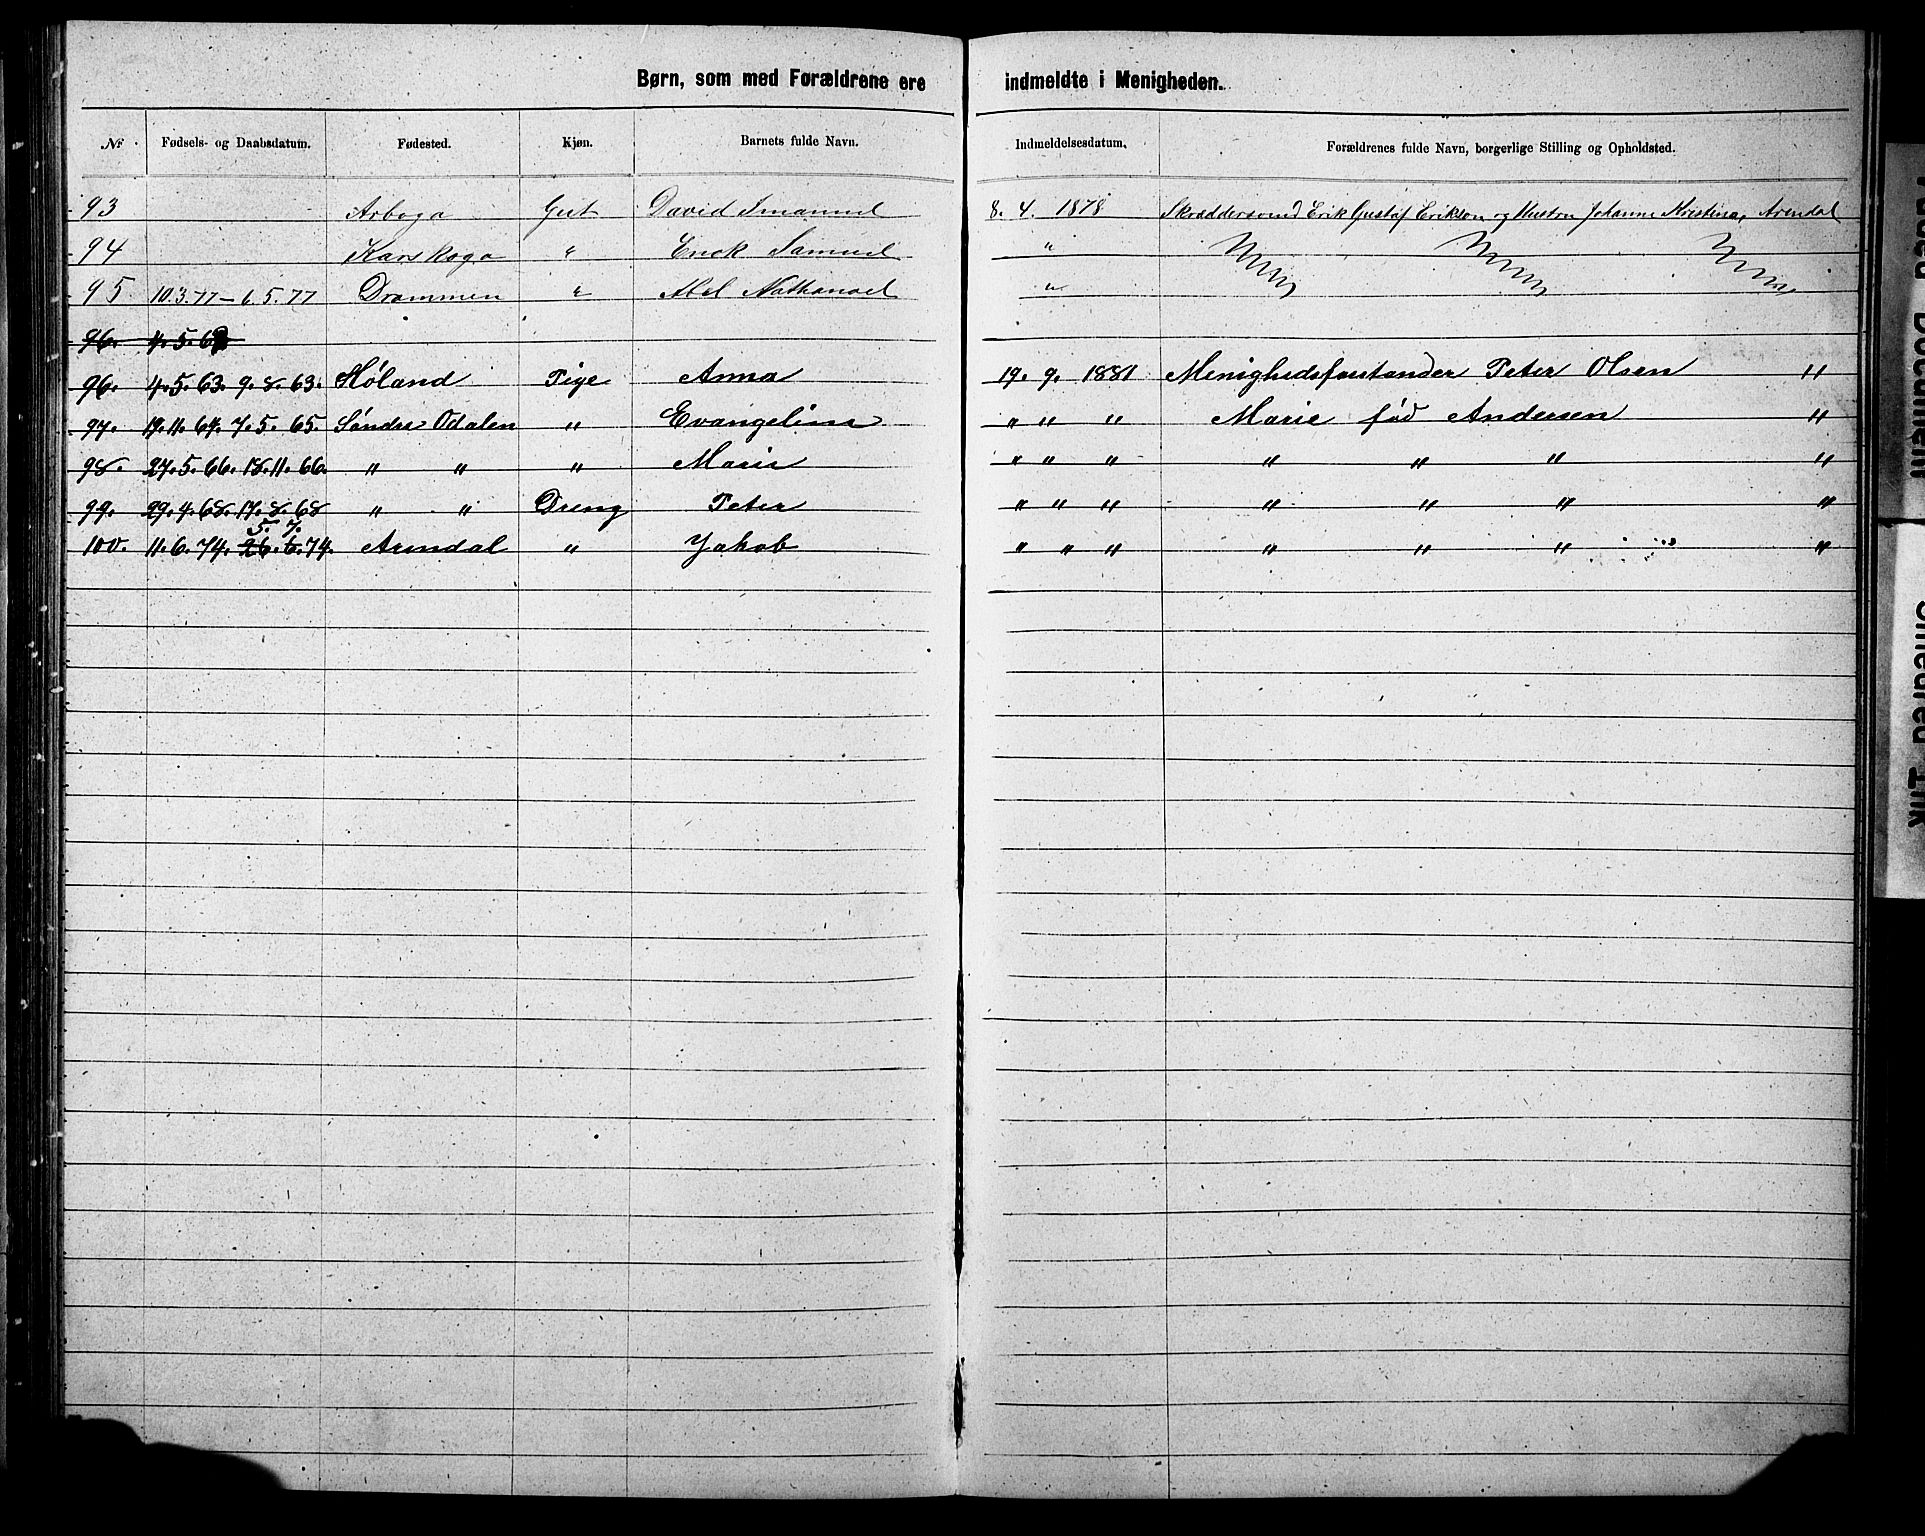 Børn, som med Forældrene ere indmeldte i Menigheden.
№ Fødsels- og Daabsdatum. Fødested. Kjøn. Barnets fulde Navn. Indmeldelsesdatum. Forældrenes fulde Navn, borgerlige Stilling og Opholdsted.
93 Arboga Gut David Imanuel 8. 4. 1878 Skræddersvend Erik Gustaf Erikson og Hustru Johanne Kristina, Arendal
94 Karskoga " Erick Samuel "
95. 10.3.77 – 6.5.77 Drammen " Abel Nathanael "
96. 4.5.62
96. 4.5.63. 9.8.63. Høland Pige Anna 19. 9. 1881 Menighedsforstander Peter Olsen "
97. 19.11.64. 7.5.65. Søndre Odalen " Evangeline " " " Marie fød Andersen "
98. 27.5.66. 18.11.66. " " " Marie " " " " " " "
99. 29.4.68. 17.8.68 " " Dreng Peter " " " " " " "
5. 7.
100. 11.6.74. 26.6.74. Arendal " Jakob " " " " " " "